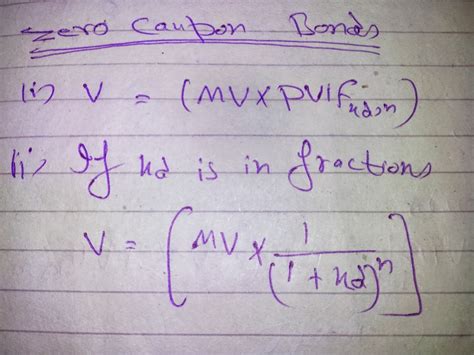 Zero Caupon Bonds
(i) V = (MV x PVIF kd,n)
(ii) If kd is in fractions
V = [MV x 1/(1 + kd)^n]